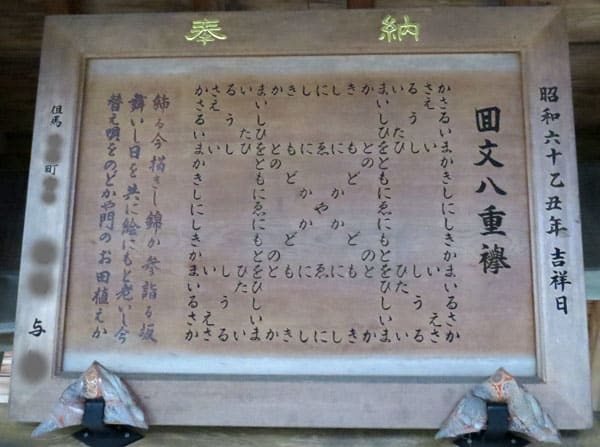 奉納
昭和六十乙丑年 吉祥日
囬文八重襷
かさるいまかきしにしきかまいるさか
さえ い い えさ
るうし しうる
いたひ ひたい
まいしひをともにゑにもとをひしいま
かとの のとか
きもど どもき
しにか かにし
にゑやゑに
しにか かにし
きもど どもき
かとの のとか
まいしひをともにゑにもとをひしいま
いたひ ひたい
るうし しうる
さえ い い えさ
かさるいまかきしにしきかまいるさか
飾る今描きし錦か参詣る坂
舞いし日を共に絵にもと老いし今
替え唄をのどかや門のお田植えか
但馬 町 与